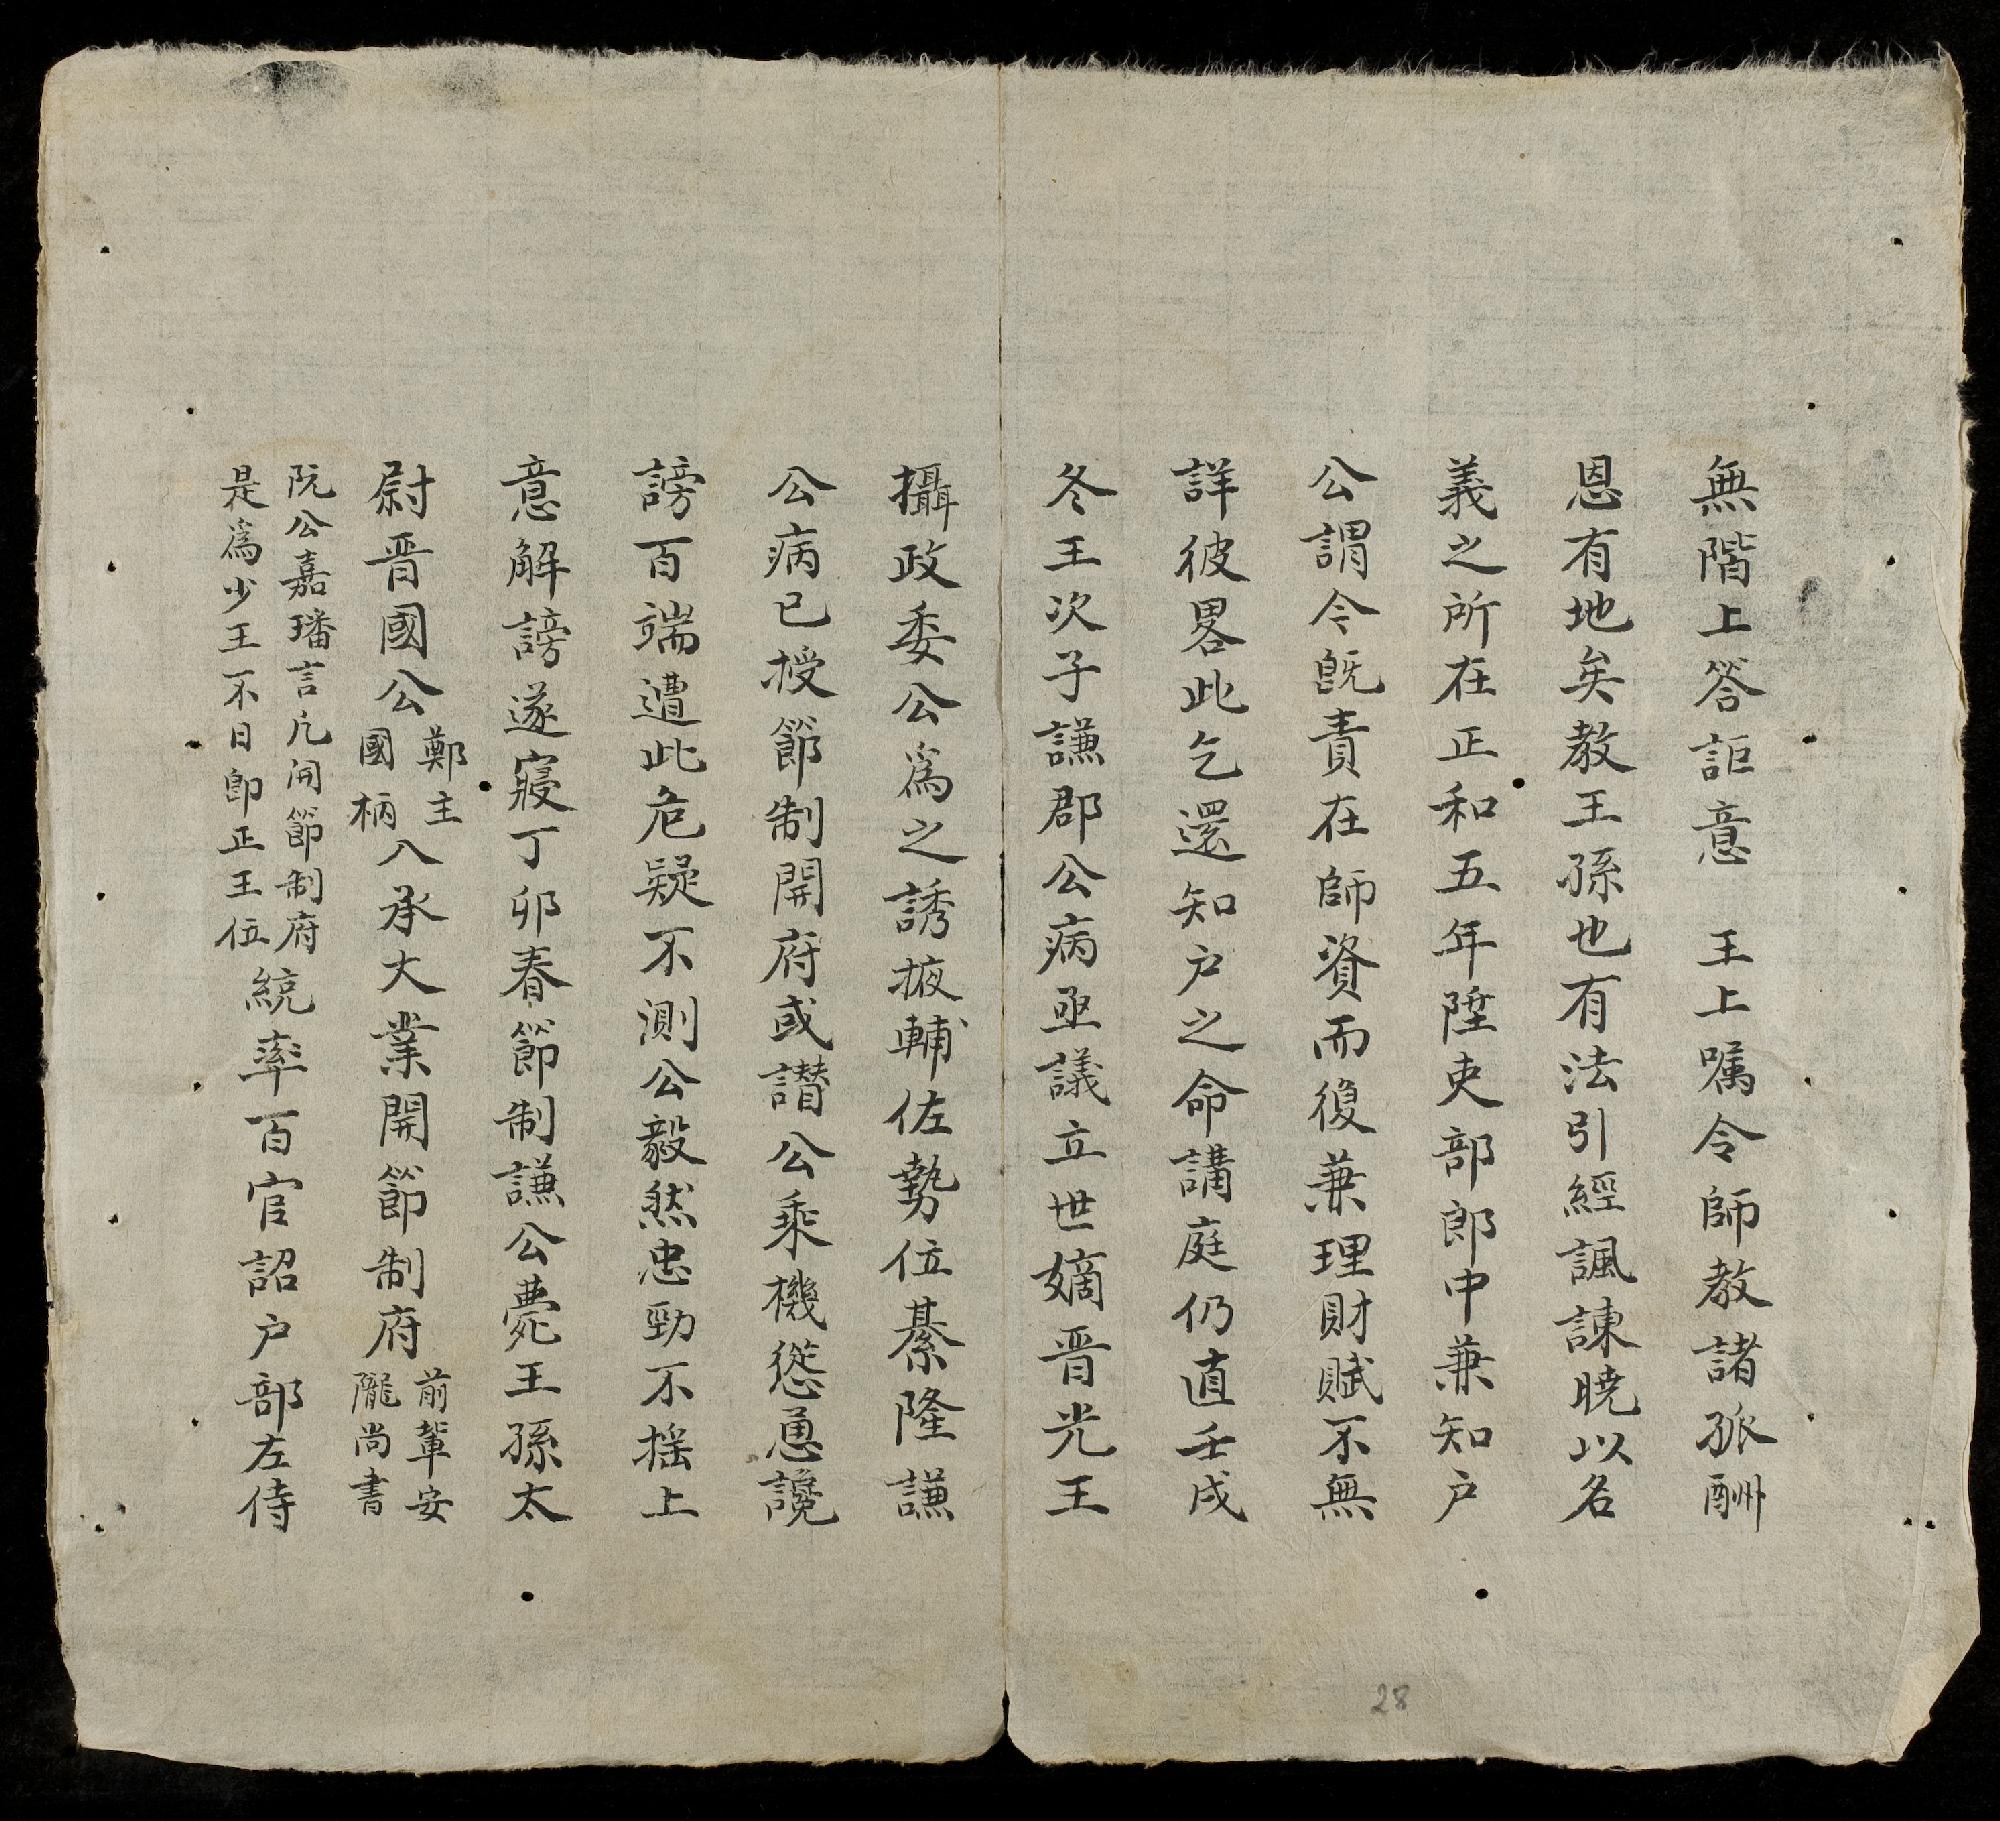 無階上答詎意　王上嘱令師教諸孤酬
恩有地矣教王孫也有法引經諷諫曉以名
義之所在正和五年陞吏部郎中兼知户
公謂今既責在師資而復兼理財賦不無
詳彼畧此乞還知户之命講庭仍直壬戌
冬王次子謙郡公病亟議立世嫡晋光王
攝政委公爲之誘掖輔佐勢位綦隆謙
公病已授節制開府或譖公乘機慫恿讒
謗百端遭此危疑不測公毅然忠勁不摇上
意解謗遂寢丁卯春節制謙公薨王孫太
尉晋國公
鄭主
國柄
八承大業開節制府
前輩安
隴尚書
阮公嘉璠言凡開節制府
是爲少王不日即正王位
統率百官詔户部左侍
28